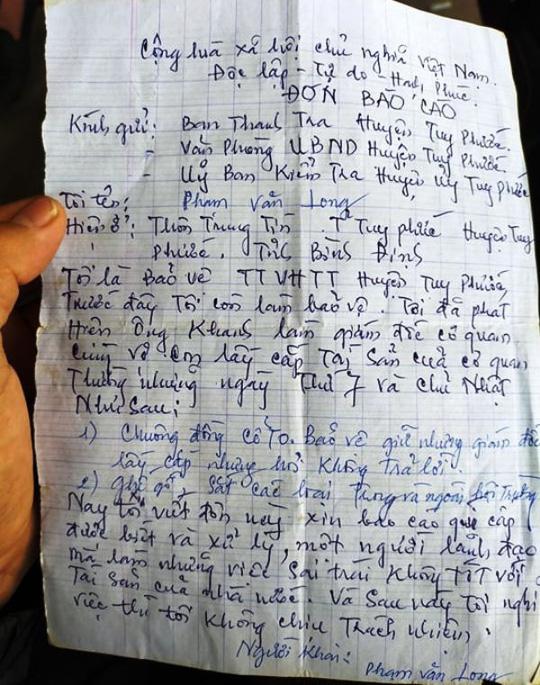 Cộng hoà xã hội chủ nghĩa Việt Nam.
Độc lập - Tự do - Hạnh Phúc.
ĐƠN BÁO CÁO
Kính gửi: Ban Thanh Tra Huyện Tuy Phước.
- Văn Phòng UBND Huyện Tuy Phước.
- Uỷ Ban Kiểm Tra Huyện Uỷ Tuy Phước
Tôi tên: Phạm Văn Long
Hiện ở: Thôn Trung Tín. TT Tuy phước Huyện Tuy
Phước. Tỉnh Bình Định
Tôi là Bảo vệ TTVHTT Huyện Tuy Phước,
Trước đây Tôi còn làm bảo vệ. Tôi đã phát
Hiện Ông Khanh làm giám đốc cơ quan
Cùng vợ con lấy cắp Tài Sản của cơ quan
Thường những ngày Thứ 7 và Chủ Nhật
Như Sau:
1) Chuông đồng cổ To. Bảo vệ giữ những giám đốc
lấy cắp nhưng hỏi Không Trả lời.
2) Ghế gỗ, Sắt các loại Trong và ngoài hội Trường
Nay tôi viết đơn này xin báo cáo quý cấp
được biết và xử lý, một người lãnh đạo
mà làm những việc Sai trái Không TỐT với
Tài sản của nhà nước. Và Sau này Tôi nghỉ
việc thì tôi Không chịu Trách nhiệm.
Người Khai:
Phạm Văn Long